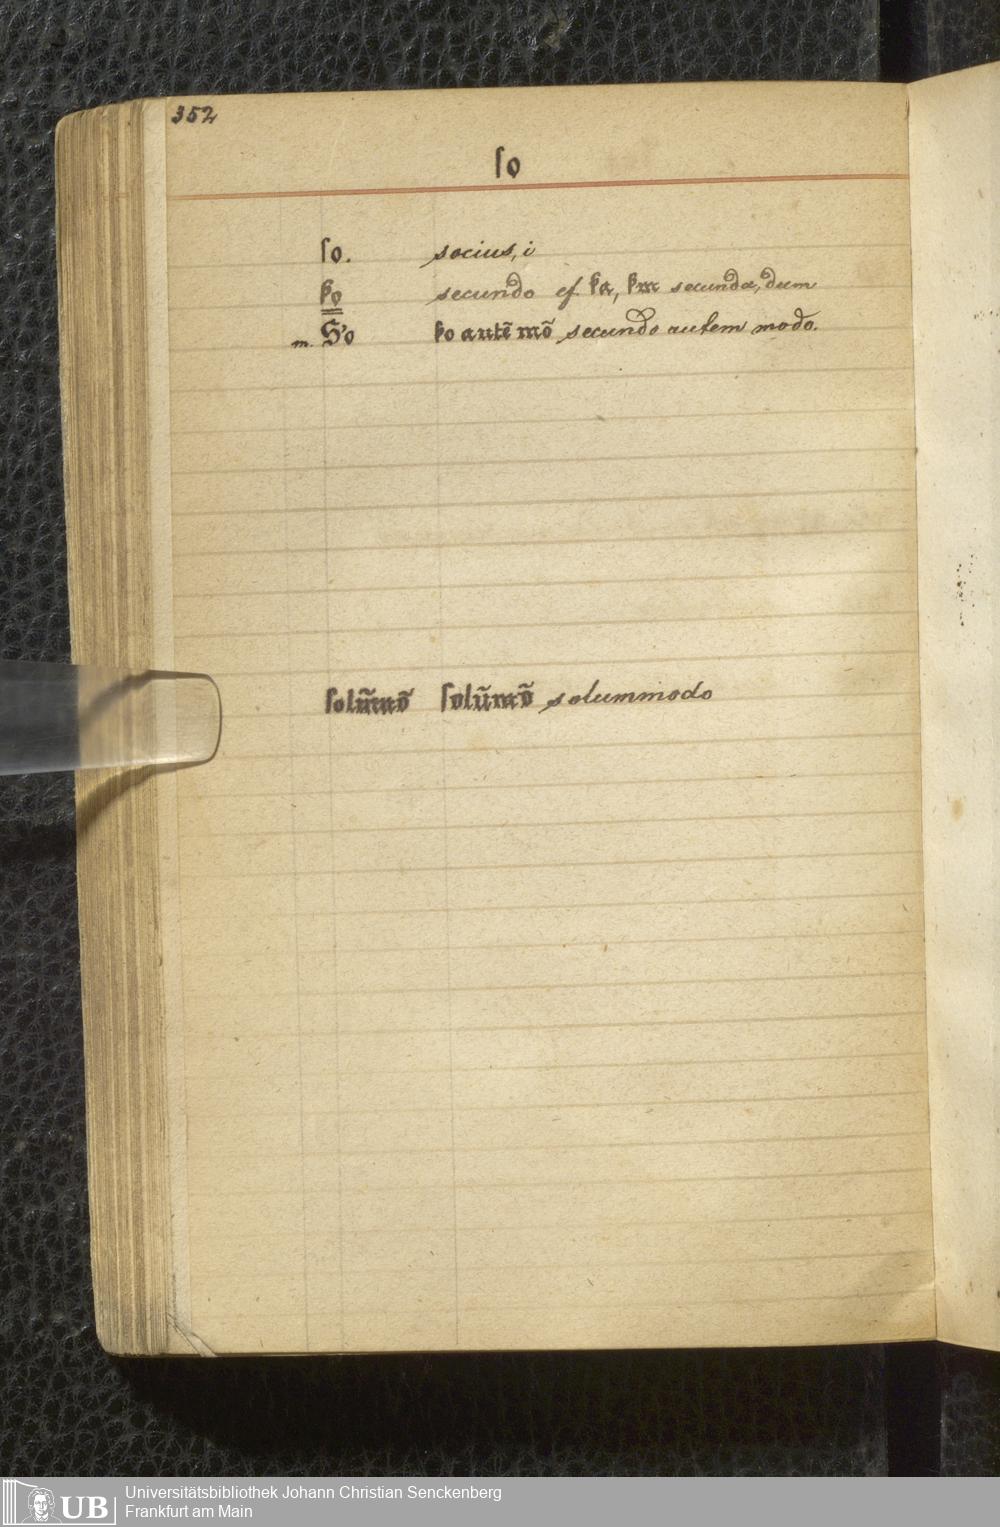 352
ſo
ſo. socius, i
ꝭo secundo cf. ꝭa, ꝭm secunda, dum
m. S'o ꝭo autē mō secundo autem modo.
ſolūmō ſolūmō solummodo
UB Universitätsbibliothek Johann Christian Senckenberg
Frankfurt am Main